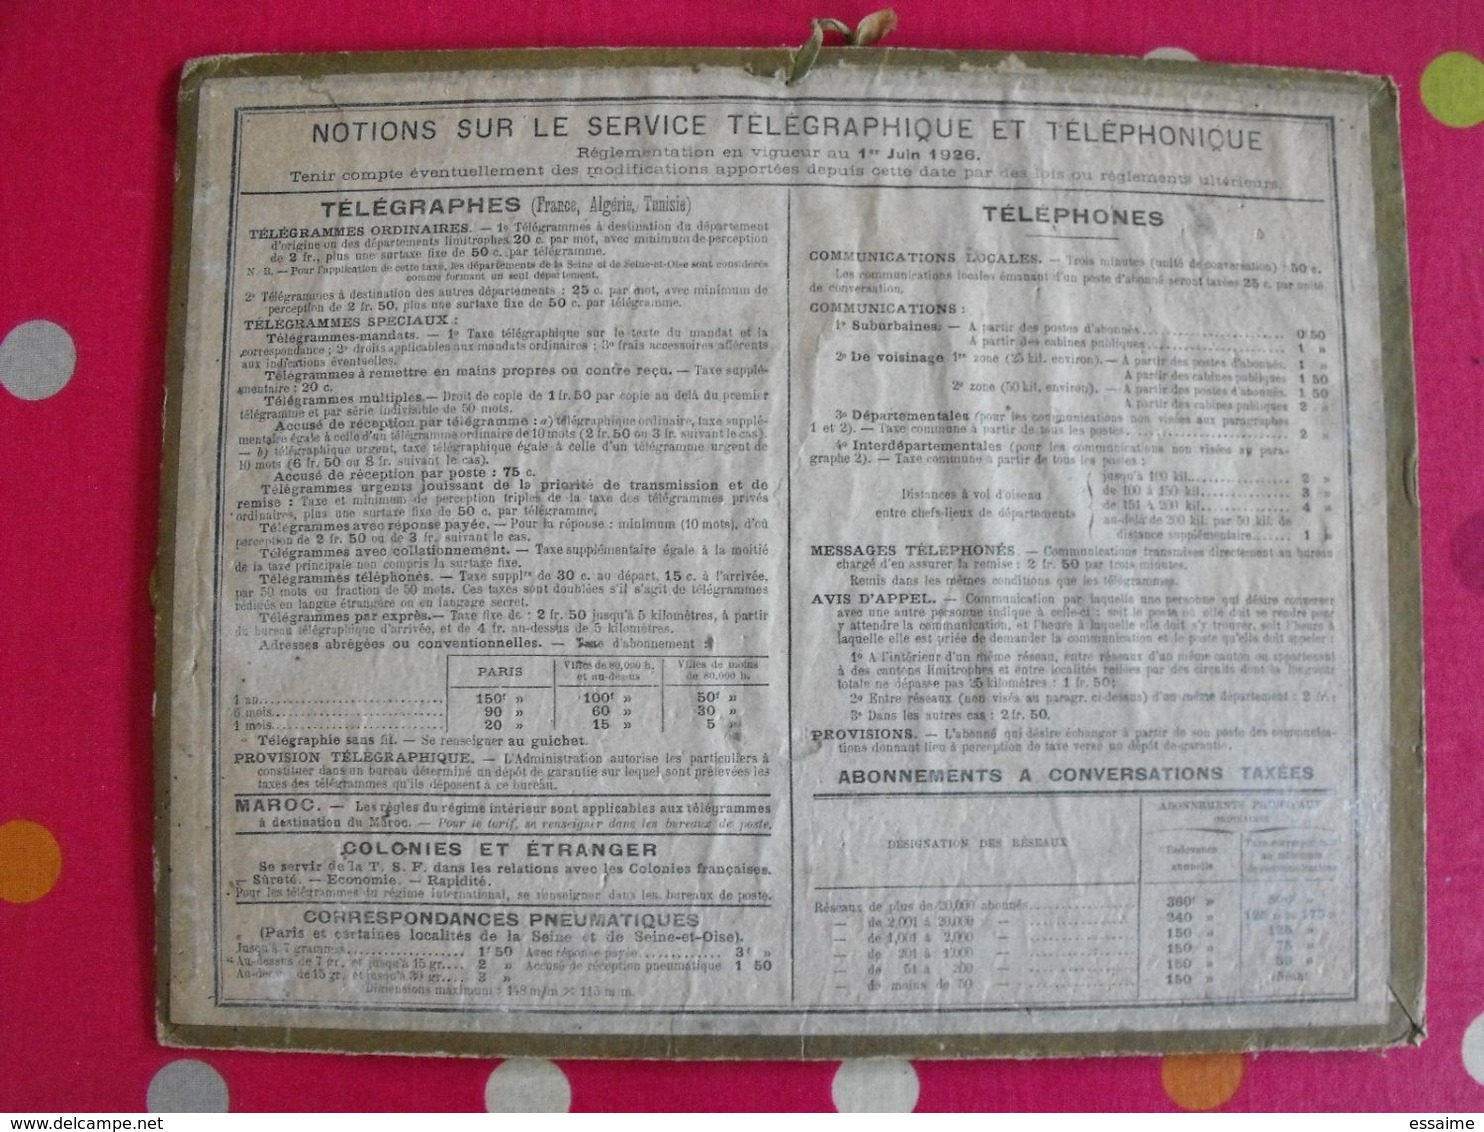 NOTIONS SUR LE SERVICE TÉLÉGRAPHIQUE ET TÉLÉPHONIQUE
Réglementation en vigueur au 1er Juin 1926.
Tenir compte éventuellement des modifications apportées depuis cette date par des lois ou règlements ultérieurs.
TÉLÉGRAPHES (France, Algérie, Tunisie)
TÉLÉGRAMMES ORDINAIRES. — 1º Télégrammes à destination du département
d'origine ou des départements limitrophes 20 c. par mot, avec minimum de perception
de 2 fr., plus une surtaxe fixe de 50 c. par télégramme.
N. B. — Pour l'application de cette taxe, les départements de la Seine et de Seine-et-Oise sont considérés
comme formant un seul département.
2º Télégrammes à destination des autres départements : 25 c. par mot, avec minimum de
perception de 2 fr. 50, plus une surtaxe fixe de 50 c. par télégramme.
TÉLÉGRAMMES SPÉCIAUX :
Télégrammes-mandats. — 1º Taxe télégraphique sur le texte du mandat et la
correspondance ; 2º droits applicables aux mandats ordinaires ; 3º frais accessoires afférents
aux indications éventuelles.
Télégrammes à remettre en mains propres ou contre reçu. — Taxe supplé-
mentaire : 20 c.
Télégrammes multiples. — Droit de copie de 1 fr. 50 par copie au delà du premier
télégramme et par série indivisible de 50 mots.
Accusé de réception par télégramme : a) télégraphique ordinaire, taxe supplé-
mentaire égale à celle d'un télégramme ordinaire de 10 mots (2 fr. 50 ou 3 fr. suivant le cas).
— b) télégraphique urgent, taxe télégraphique égale à celle d'un télégramme urgent de
10 mots (6 fr. 50 ou 8 fr. suivant le cas).
Accusé de réception par poste : 75 c.
Télégrammes urgents jouissant de la priorité de transmission et de
remise : Taxe et minimum de perception triples de la taxe des télégrammes privés
ordinaires, plus une surtaxe fixe de 50 c. par télégramme.
Télégrammes avec réponse payée. — Pour la réponse : minimum (10 mots), d'où
perception de 2 fr. 50 ou de 3 fr. suivant le cas.
Télégrammes avec collationnement. — Taxe supplémentaire égale à la moitié
de la taxe principale non compris la surtaxe fixe.
Télégrammes téléphonés. — Taxe supplre de 30 c. au départ, 15 c. à l'arrivée,
par 50 mots ou fraction de 50 mots. Ces taxes sont doublées s'il s'agit de télégrammes
rédigés en langue étrangère ou en langage secret.
Télégrammes par exprès. — Taxe fixe de : 2 fr. 50 jusqu'à 5 kilomètres, à partir
du bureau télégraphique d'arrivée, et de 4 fr. au-dessus de 5 kilomètres.
Adresses abrégées ou conventionnelles. — Taxe d'abonnement :
PARIS Villes de 80,000 h. et au-dessus Villes de moins de 80.000 h.
1 an 150f » 100f » 50f »
6 mois 90 » 60 » 30 »
1 mois 20 » 15 » 5 »
Télégraphie sans fil. — Se renseigner au guichet.
PROVISION TÉLÉGRAPHIQUE. — L'Administration autorise les particuliers à
constituer dans un bureau déterminé un dépôt de garantie sur lequel sont prélevées les
taxes des télégrammes qu'ils déposent à ce bureau.
MAROC. — Les règles du régime intérieur sont applicables aux télégrammes
à destination du Maroc. — Pour le tarif, se renseigner dans les bureaux de poste.
COLONIES ET ÉTRANGER
Se servir de la T. S. F. dans les relations avec les Colonies françaises.
— Sûreté. — Economie. — Rapidité.
Pour les télégrammes du régime international, se renseigner dans les bureaux de poste.
CORRESPONDANCES PNEUMATIQUES
(Paris et certaines localités de la Seine et de Seine-et-Oise).
Jusqu'à 7 grammes 1f 50 Avec réponse payée 3f »
Au-dessus de 7 gr. et jusqu'à 15 gr. 2 » Accusé de réception pneumatique 1 50
Au-dessus de 15 gr. et jusqu'à 30 gr. 3 »
Dimensions maximum : 148 m/m × 115 m m.
TÉLÉPHONES
COMMUNICATIONS LOCALES. — Trois minutes (unité de conversation) : 50 c.
Les communications locales émanant d'un poste d'abonné seront taxées 25 c. par unité
de conversation.
COMMUNICATIONS :
1º Suburbaines. — A partir des postes d'abonnés 0 50
A partir des cabines publiques 1 »
2º De voisinage 1re zone (25 kil. environ). — A partir des postes d'abonnés. 1 »
A partir des cabines publiques 1 50
2e zone (50 kil. environ). — A partir des postes d'abonnés. 1 50
A partir des cabines publiques 2 »
3º Départementales (pour les communications non visées aux paragraphes
1 et 2). — Taxe commune à partir de tous les postes 2 »
4º Interdépartementales (pour les communications non visées au para-
graphe 2). — Taxe commune à partir de tous les postes :
Distances à vol d'oiseau
entre chefs-lieux de départements
jusqu'à 100 kil. 2 »
de 100 à 150 kil. 3 »
de 151 à 200 kil. 4 »
au-delà de 200 kil. par 50 kil. de
distance supplémentaire 1 »
MESSAGES TÉLÉPHONÉS. — Communications transmises directement au bureau
chargé d'en assurer la remise : 2 fr. 50 par trois minutes.
Remis dans les mêmes conditions que les télégrammes.
AVIS D'APPEL. — Communication par laquelle une personne qui désire converser
avec une autre personne indique à celle-ci : soit le poste où elle doit se rendre pour
y attendre la communication, et l'heure à laquelle elle doit s'y trouver, soit l'heure à
laquelle elle est priée de demander la communication et le poste qu'elle doit appeler :
1º A l'intérieur d'un même réseau, entre réseaux d'un même canton ou appartenant
à des cantons limitrophes et entre localités reliées par des circuits dont la longueur
totale ne dépasse pas 25 kilomètres : 1 fr. 50 ;
2º Entre réseaux (non visés au paragr. ci-dessus) d'un même département : 2 fr. ;
3º Dans les autres cas : 2 fr. 50.
PROVISIONS. — L'abonné qui désire échanger à partir de son poste des communica-
tions donnant lieu à perception de taxe verse un dépôt de garantie.
ABONNEMENTS A CONVERSATIONS TAXÉES
DÉSIGNATION DES RÉSEAUX ABONNEMENTS PRINCIPAUX
Redevance annuelle
Réseaux de plus de 20,000 abonnés 360f »
— de 2,001 à 20,000 — 240 »
— de 1,001 à 2,000 — 150 »
— de 201 à 1,000 — 150 »
— de 51 à 200 — 150 »
— de moins de 50 — 150 »
essaime